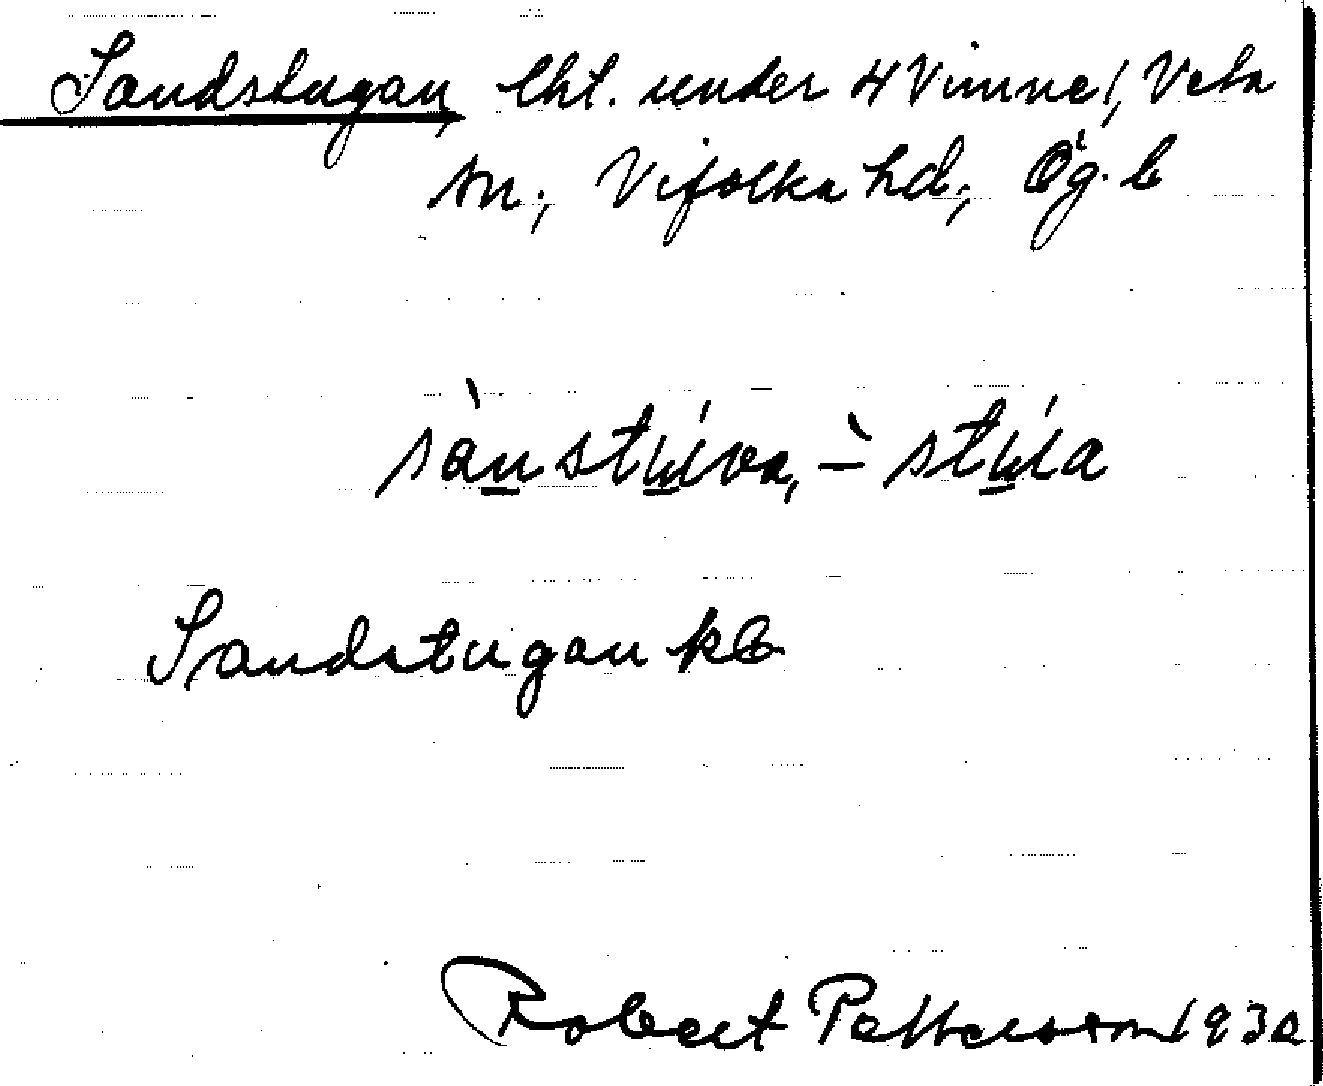 Sandstugan, lht. under 4 Vimne!, Veta
sn; Vifolka hd; Ög. l
sànstúva, -̀ stúa
Sandstugan kb
Robert Petterson 1930